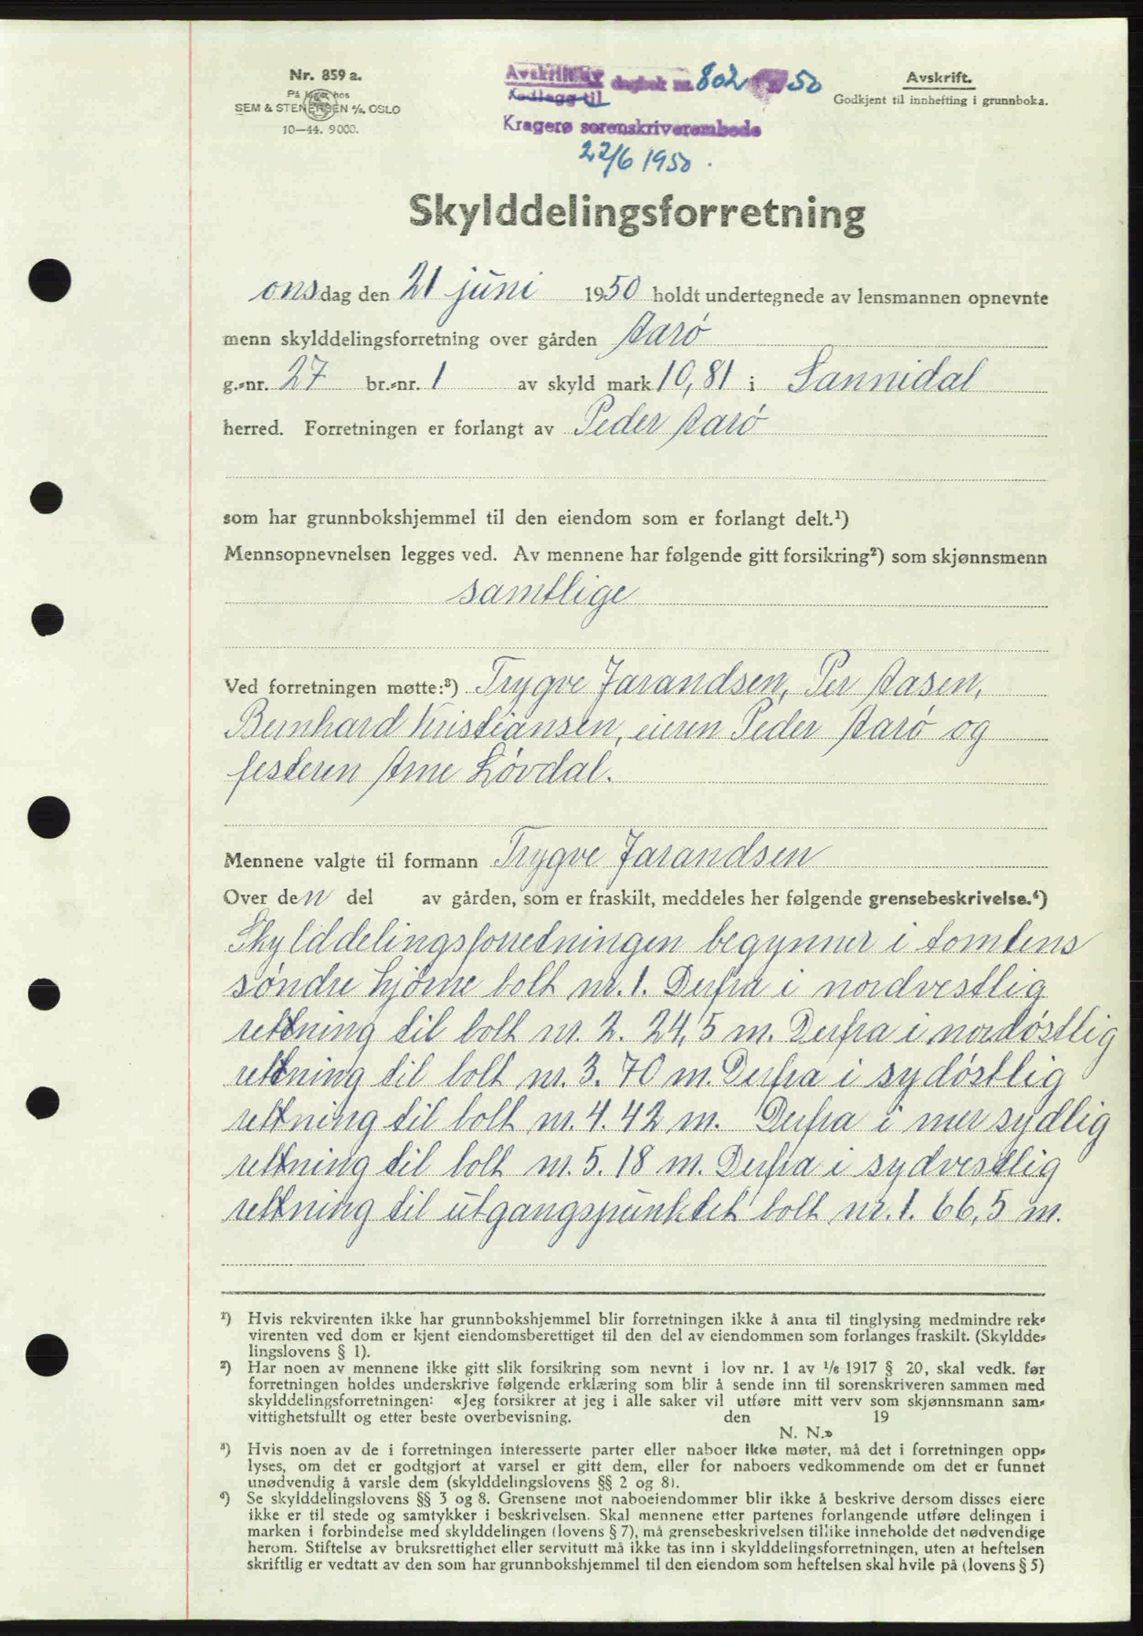 Nr. 859 a.
På lager hos
SEM & STENERSEN A/S, OSLO
10—44. 9000.
Avskrift av dagbok nr. 802 1950
Vedlagg til
Kragerø sorenskriverembede
22/6 1950.
Avskrift.
Godkjent til innhefting i grunnboka.
Skylddelingsforretning
onsdag den 21 juni 1950 holdt undertegnede av lensmannen opnevnte
menn skylddelingsforretning over gården Aarø
g.-nr. 27 br.-nr. 1 av skyld mark 10,81 i Sannidal
herred. Forretningen er forlangt av Peder Aarø
som har grunnbokshjemmel til den eiendom som er forlangt delt.¹)
Mennsopnevnelsen legges ved. Av mennene har følgende gitt forsikring²) som skjønnsmenn
samtlige
Ved forretningen møtte:³) Trygve Jarandsen, Per Aasen,
Bernhard Kristiansen, eieren Peder Aarø og
festeren Arne Løvdal.
Mennene valgte til formann Trygve Jarandsen
Over den del av gården, som er fraskilt, meddeles her følgende grensebeskrivelse.⁴)
Skylddelingsforretningen begynner i tomtens
søndre hjørne bolt nr. 1. Derfra i nordvestlig
retning til bolt nr. 2. 24,5 m. Derfra i nordøstlig
retning til bolt nr. 3. 70 m. Derfra i sydøstlig
retning til bolt nr. 4. 42 m. Derfra i mer sydlig
retning til bolt nr. 5. 18 m. Derfra i sydvestlig
retning til utgangspunktet bolt nr. 1. 66,5 m.
¹) Hvis rekvirenten ikke har grunnbokshjemmel blir forretningen ikke å anta til tinglysing medmindre rek-
virenten ved dom er kjent eiendomsberettiget til den del av eiendommen som forlanges fraskilt. (Skyldde-
lingslovens § 1).
²) Har noen av mennene ikke gitt slik forsikring som nevnt i lov nr. 1 av 1/6 1917 § 20, skal vedk. før
forretningen holdes underskrive følgende erklæring som blir å sende inn til sorenskriveren sammen med
skylddelingsforretningen: «Jeg forsikrer at jeg i alle saker vil utføre mitt verv som skjønnsmann sam-
vittighetsfullt og etter beste overbevisning. den 19
N. N.»
³) Hvis noen av de i forretningen interesserte parter eller naboer ikke møter, må det i forretningen opp-
lyses, om det er godtgjort at varsel er gitt dem, eller for naboers vedkommende om det er funnet
unødvendig å varsle dem (skylddelingslovens §§ 2 og 8).
⁴) Se skylddelingslovens §§ 3 og 8. Grensene mot naboeiendommer blir ikke å beskrive dersom disses eiere
ikke er til stede og samtykker i beskrivelsen. Skal mennene etter partenes forlangende utføre delingen i
marken i forbindelse med skylddelingen (lovens § 7), må grensebeskrivelsen tillike inneholde det nødvendige
herom. Stiftelse av bruksrettighet eller servitutt må ikke tas inn i skylddelingsforretningen, uten at heftelsen
skriftlig er vedtatt av den som har grunnbokshjemmel til den eiendom som heftelsen skal hvile på (lovens § 5)